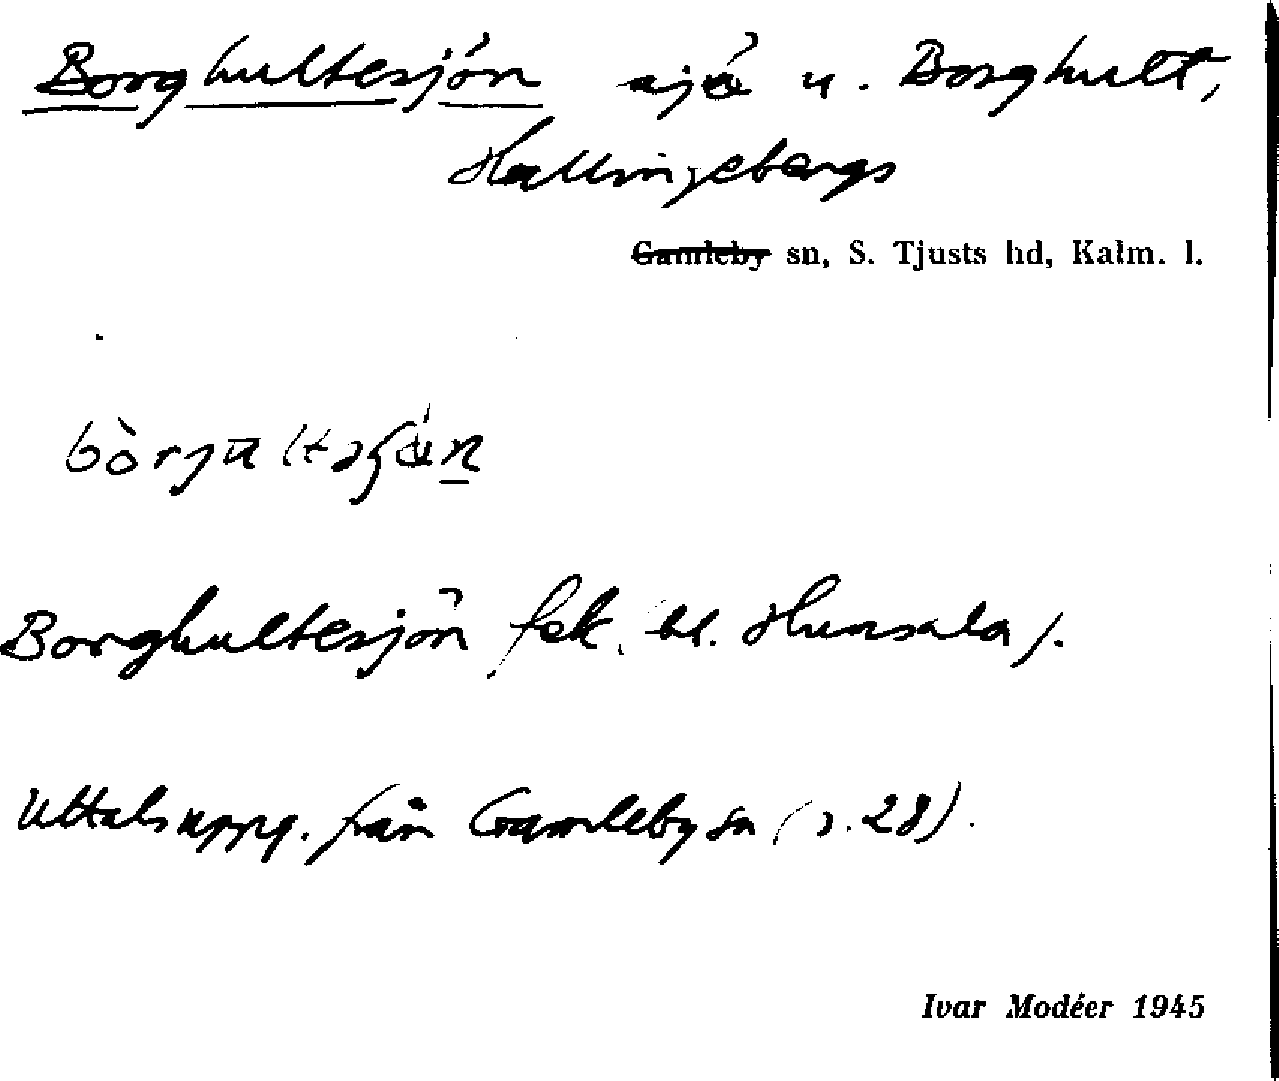 Borghultesjön sjö n. Borghult,
Hallingebergs
Gamleby sn, S. Tjusts hd, Kalm. l.
Borghultesjön fek. bl. Hunsala /.
Uttalsuppg. från Gamleby sn (s. 28).
Ivar Modéer 1945